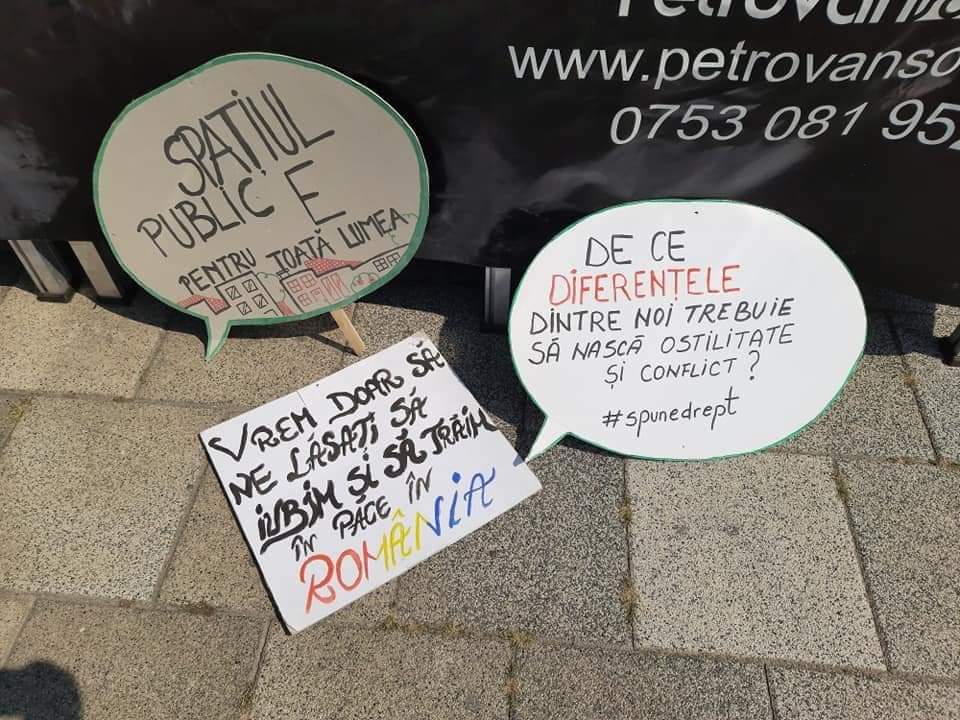 SPAȚIUL
PUBLIC E
PENTRU TOATĂ LUMEA
www.petrovanso
0753 081 952
DE CE
DIFERENȚELE
DINTRE NOI TREBUIE
SĂ NASCĂ OSTILITATE
ȘI CONFLICT?
#spunedrept
VREM DOAR SĂ
NE LĂSAȚI SĂ
IUBIM ȘI SĂ TRĂIM
ÎN PACE ÎN
ROMÂNIA